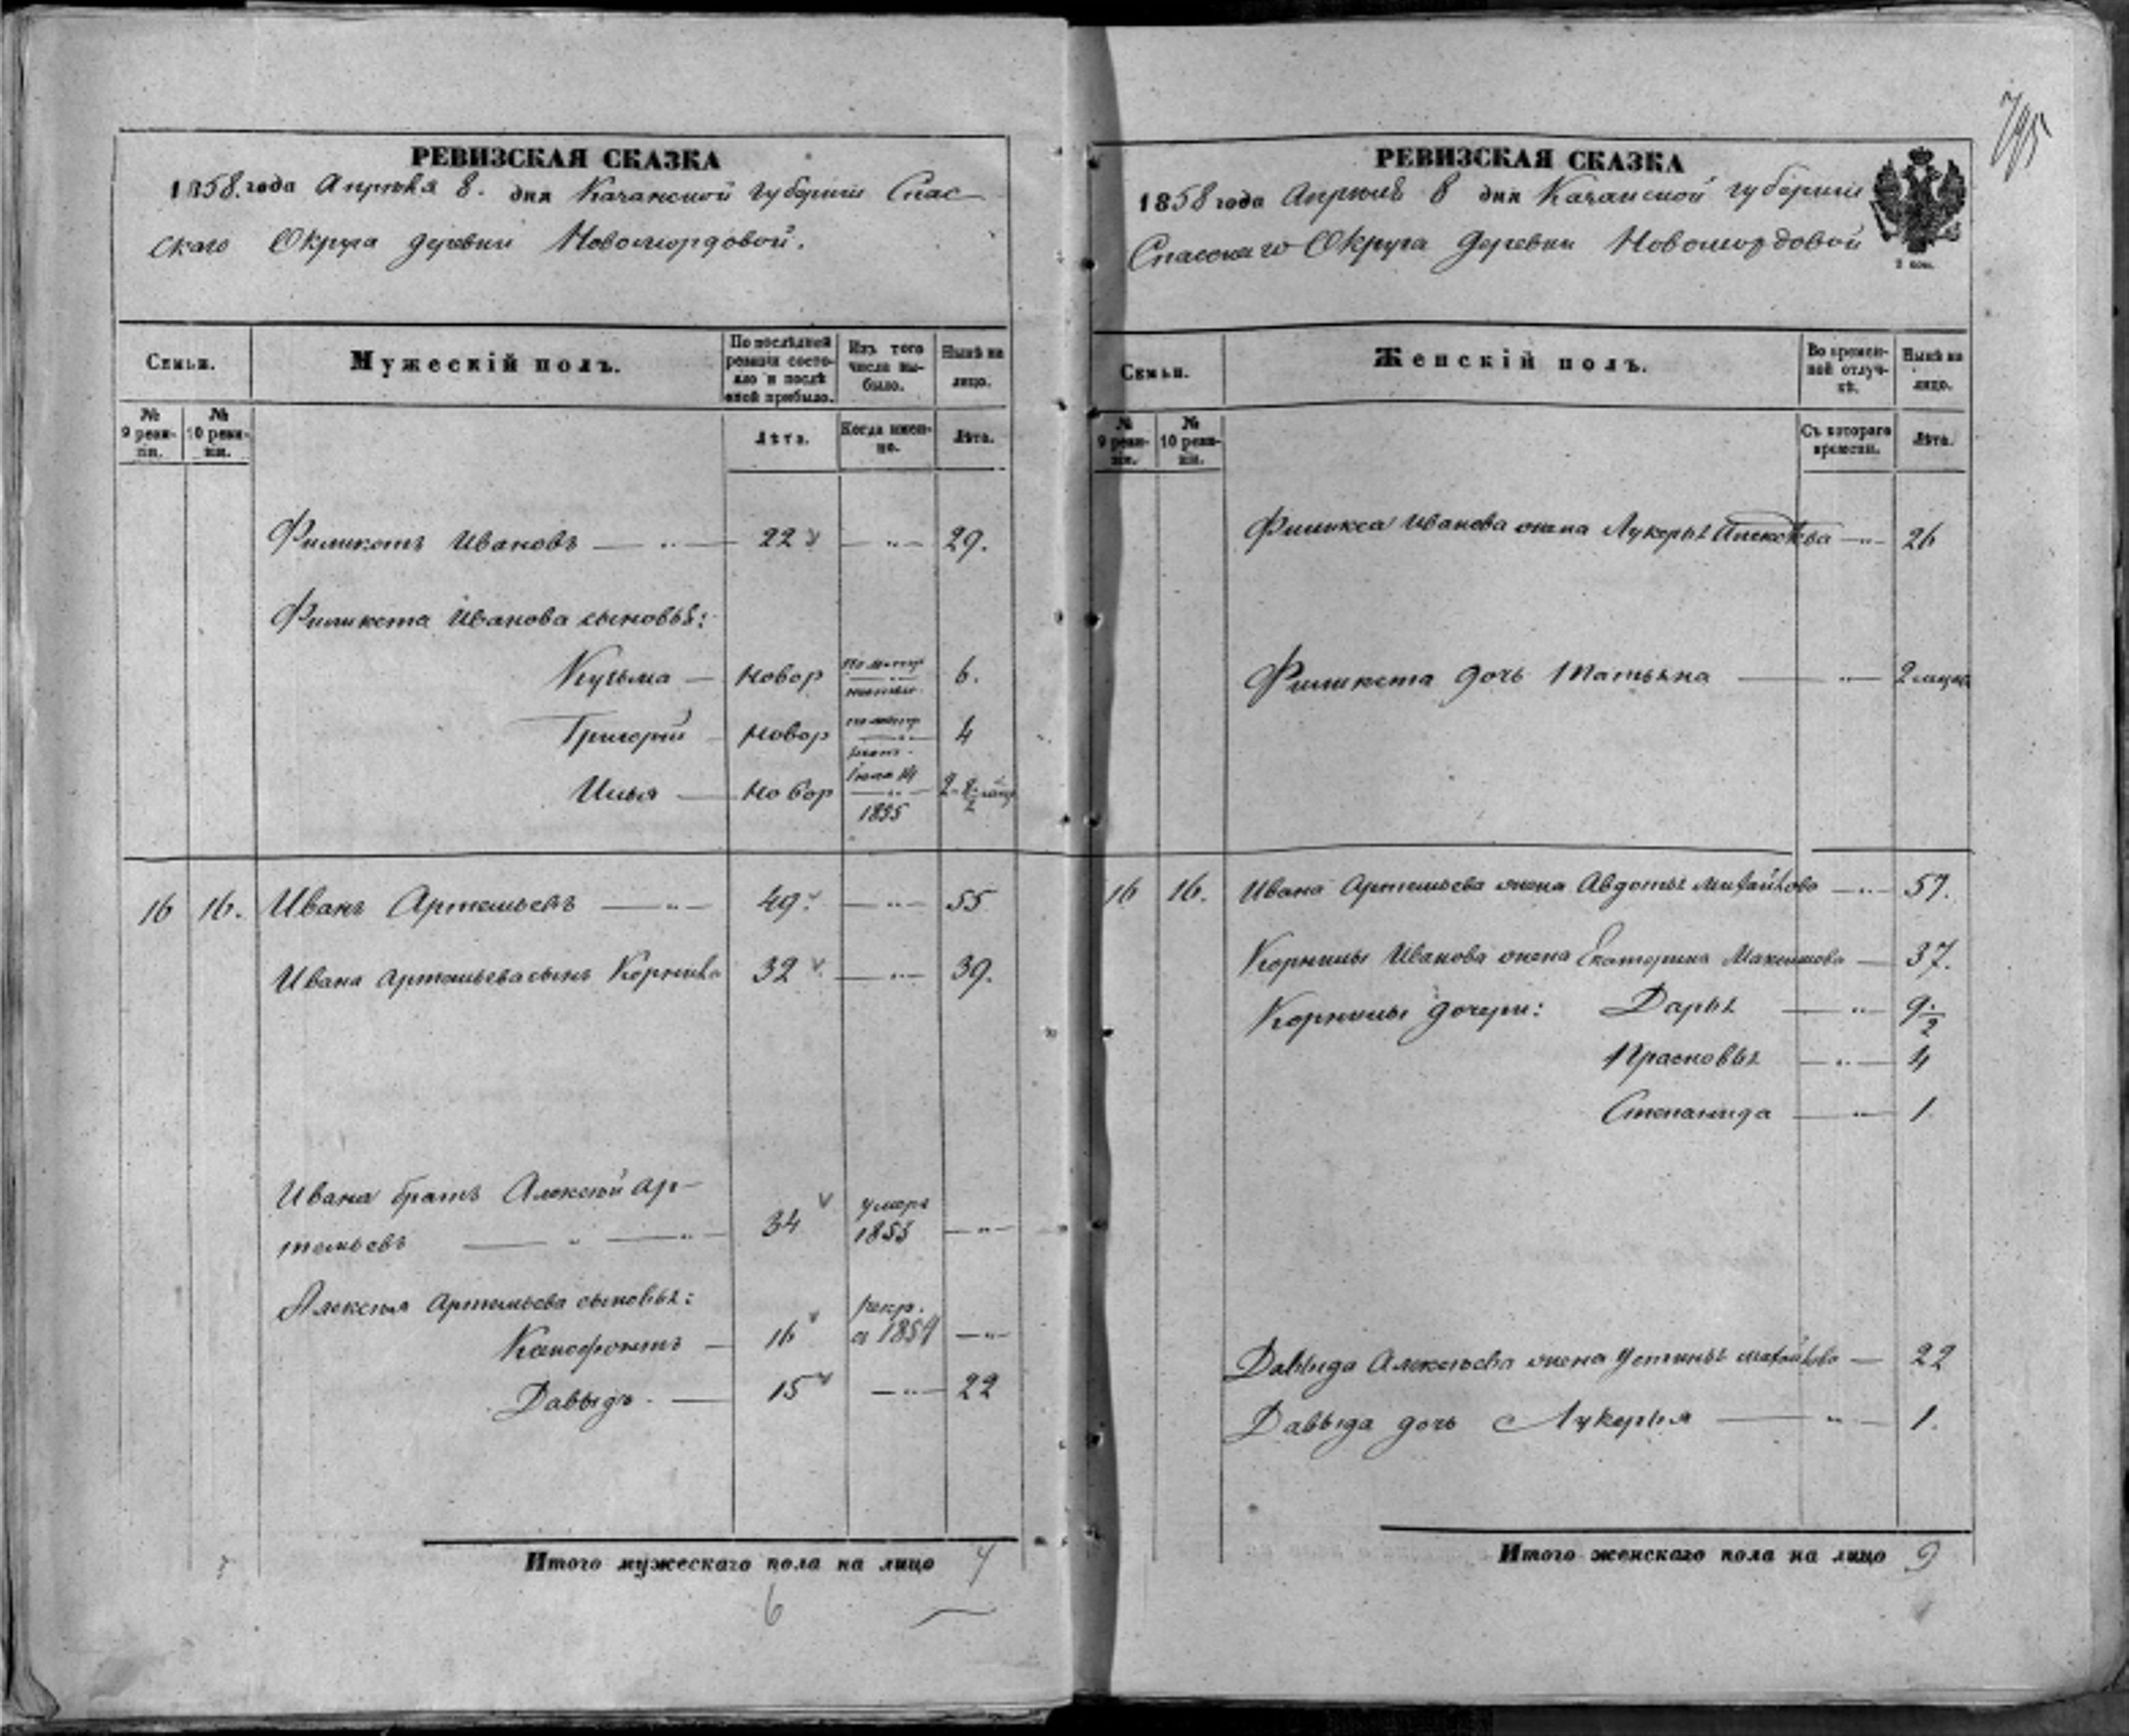 РЕВИЗСКАЯ СКАЗКА
1858. года Апреля 8. дня Казанской губернiи Спас-
скаго Округа деревни Новомордовой.
Семьи.
Мужескiй полъ.
По послѣдней ревизiи состояло и послѣ оной прибыло.
Изъ того числа выбыло.
Нынѣ на лицо.
№ 9 реви-зiи.
№ 10 реви-зiи.
Лѣта.
Когда имен-но.
Лѣта.
Филикстъ Ивановъ — „ — 22 — „ — 29.
Филикста Иванова сыновья:
Кузьма — новор 6.
Григорiй — новор 4
Илья — новор 1855
16 16. Иванъ Артемьевъ — „ — 49. — „ — 55
Ивана Артемьева сынъ Корнила 32 — „ — 39.
Ивана братъ Алексѣй Ар-
темьевъ — „ — 34 умеръ 1853 — „ —
Алексѣя Артемьева сыновья:
Ксенофонтъ — 16 рекр. в 1854 — „ —
Давыдъ. — 15 — „ — 22
Итого мужескаго пола на лицо 7
6
795
РЕВИЗСКАЯ СКАЗКА
1858 года Апреля 8 дня Казанской губернiи
Спасскаго Округа деревни Новомордовой
Семьи.
Женскiй полъ.
Во времен-ной отлуч-кѣ.
Нынѣ на лицо.
№ 9 реви-зiи.
№ 10 реви-зiи.
Съ котораго времени.
Лѣта.
Филикса Иванова жена Лукерья — „ — 26
Филикста дочь Татьяна — „ — 2
16 16. Ивана Артемьева жена Авдотья Михайлова — „ — 57.
Корнилы Иванова жена Екатерина Максимова — 37.
Корнилы дочери: Дарья — „ — 9 1/2
Прасковья — „ — 4
Степанида — „ — 1
Давыда Алексѣева жена Устинья Михайлова — 22
Давыда дочь Лукерья — „ — 1.
Итого женскаго пола на лицо 9